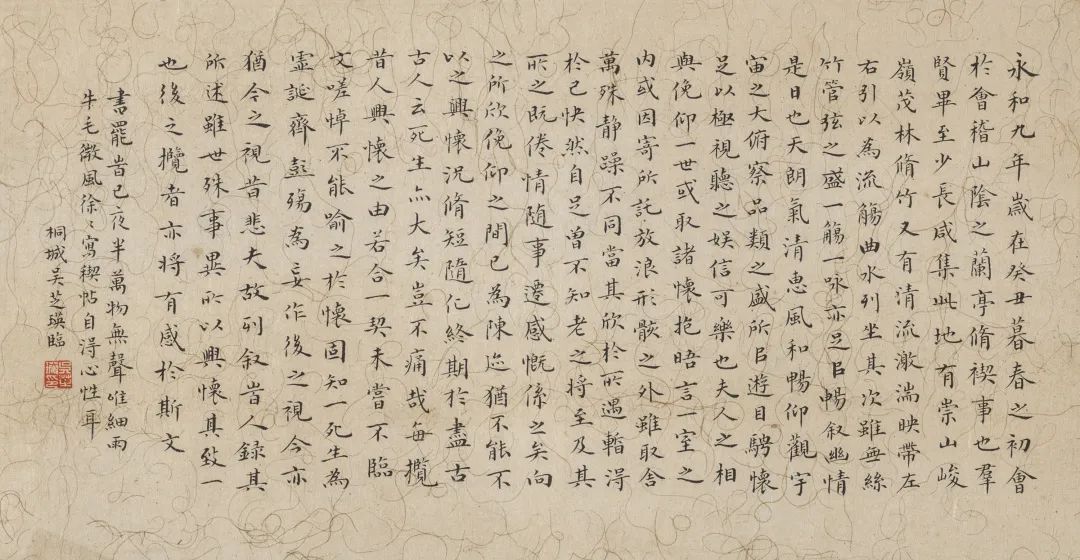 永和九年歲在癸丑暮春之初會
於會稽山陰之蘭亭脩禊事也羣
賢畢至少長咸集此地有崇山峻
嶺茂林脩竹又有清流激湍映帶左
右引以為流觴曲水列坐其次雖無絲
竹管弦之盛一觴一咏亦足㠯暢叙幽情
是日也天朗氣清惠風和暢仰觀宇
宙之大俯察品類之盛所㠯遊目騁懷
足以極視聽之娱信可樂也夫人之相
與俛仰一世或取諸懷抱晤言一室之
内或因寄所託放浪形骸之外雖取舍
萬殊静躁不同當其欣於所遇暫得
於己快然自足曾不知老之将至及其
所之既倦情随事遷感慨係之矣向
之所欣俛仰之間已為陳迹猶不能不
以之興懷况脩短隨化終期於盡古
古人云死生亦大矣豈不痛哉每攬
昔人興懷之由若合一契未嘗不臨
文嗟悼不能喻之於懷固知一死生為
虛誕齊彭殤為妄作後之視今亦
猶今之視昔悲夫故列叙昔人録其
所述雖世殊事異所以興懷其致一
也後之攬者亦将有感於斯文
書罷昔已夜半萬物無聲唯細雨
牛毛微風徐々寫禊帖自得心性耳
桐城吴芝瑛臨